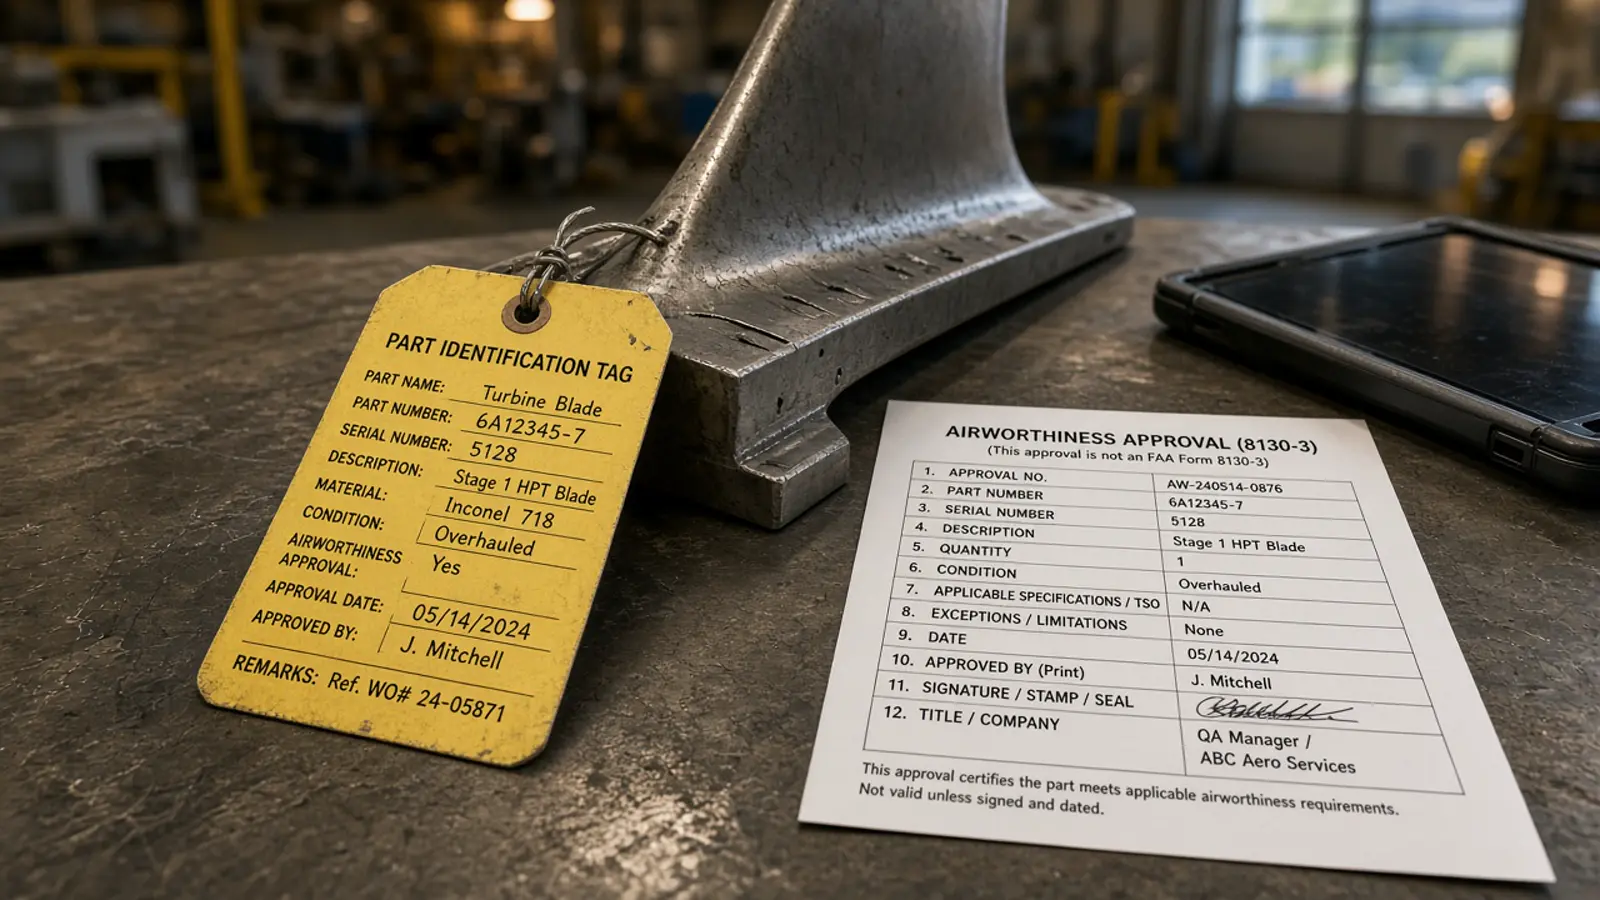 PART IDENTIFICATION TAG
PART NAME: Turbine Blade
PART NUMBER: 6A12345-7
SERIAL NUMBER: 5128
DESCRIPTION: Stage 1 HPT Blade
MATERIAL: Inconel 718
CONDITION: Overhauled
AIRWORTHINESS
APPROVAL: Yes
APPROVAL DATE: 05/14/2024
APPROVED BY: J. Mitchell
REMARKS: Ref. WO# 24-05871
AIRWORTHINESS APPROVAL (8130-3)
(This approval is not an FAA Form 8130-3)
1. APPROVAL NO. AW-240514-0876
2. PART NUMBER 6A12345-7
3. SERIAL NUMBER 5128
4. DESCRIPTION Stage 1 HPT Blade
5. QUANTITY 1
6. CONDITION Overhauled
7. APPLICABLE SPECIFICATIONS / TSO N/A
8. EXCEPTIONS / LIMITATIONS None
9. DATE 05/14/2024
10. APPROVED BY (Print) J. Mitchell
11. SIGNATURE / STAMP / SEAL
12. TITLE / COMPANY QA Manager /
ABC Aero Services
This approval certifies the part meets applicable airworthiness requirements.
Not valid unless signed and dated.